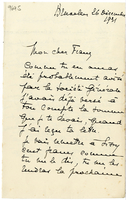 Bruxelles 26 Décembre
1931
Mon cher Franz
Comme tu en auras
été probablement avisé
par la Société Générale
j'avais déjà versé à
ton compte la somme
que je te devais, quand
j'ai reçu ta lettre.
Je vais remettre à
cent francs comme
tu me le dis, tu me les
rendras la prochaine